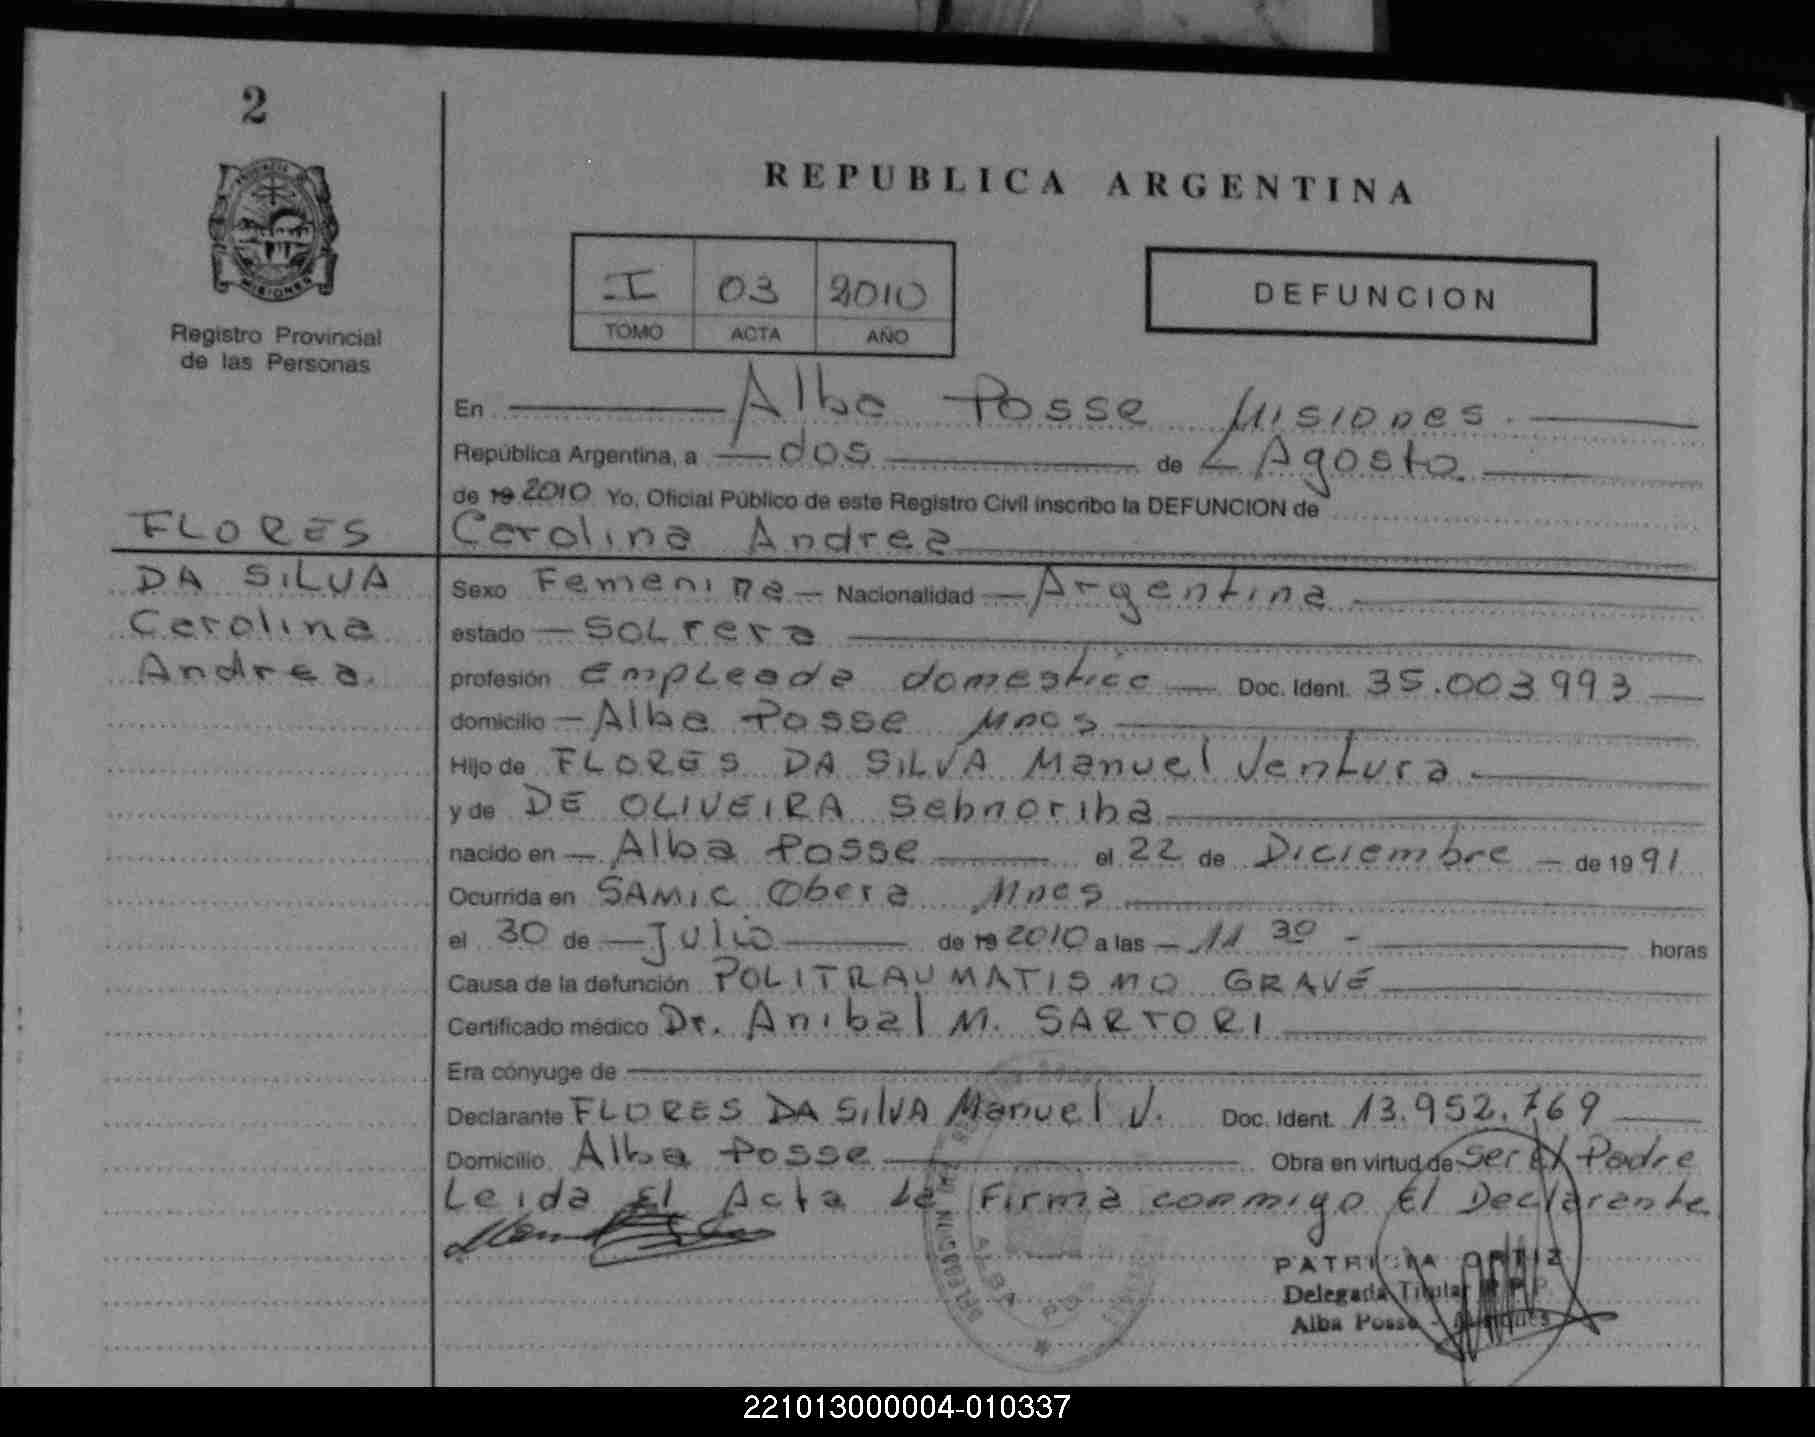 2
PROVINCIA
MISIONES
Registro Provincial
de las Personas
REPUBLICA ARGENTINA
I 03 2010
TOMO ACTA AÑO
DEFUNCION
En Alba Posse Misiones.
República Argentina, a dos de Agosto
de 19 2010 Yo, Oficial Público de este Registro Civil inscribo la DEFUNCION de
FLORES
DA SILVA
Carolina
Andrea.
Carolina Andrea
Sexo Femenina Nacionalidad Argentina
estado Soltera
profesión Empleada domestica Doc. Ident. 35.003993
domicilio Alba Posse Mnes
Hijo de FLORES DA SILVA Manuel Ventura
y de DE OLIVEIRA Sebnoriha
nacido en Alba Posse el 22 de Diciembre de 1991
Ocurrida en SAMIC Obera Mnes
el 30 de Julio de 19 2010 a las 11 30 horas
Causa de la defunción POLITRAUMATISMO GRAVE
Certificado médico Dr. Anibal M. SARTORI
Era cónyuge de
Declarante FLORES DA SILVA Manuel V. Doc. Ident. 13.952.769
Domicilio Alba Posse Obra en virtud de Ser El Padre
Leida El Acta la Firma conmigo El Declarante
PATRICIA ORTIZ
Delegada Titular
Alba Posse - Misiones
221013000004-010337